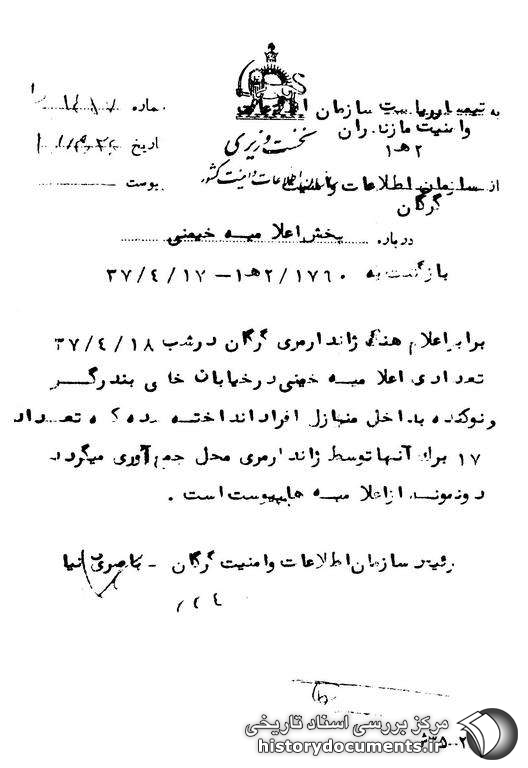 به تیمسار ریاست سازمان اطلاعات
وامنیت مازندران
۲ هـ ۱
نخست وزیری
سازمان اطلاعات و امنیت کشور
شماره
تاریخ
پیوست
از سازمان اطلاعات و امنیت
گرگان
درباره پخش اعلامیه خمینی
بازگشت به ۲/۱۷۶۰هـ۱ – ۳۷/٤/۱۷
برابر اعلام هنگ ژاندارمری گرگان در شب ۳۷/٤/۱۸
تعدادی اعلامیه خمینی در خیابان های بندر گز
و نوکنده بداخل منازل افراد انداخته شده که تعداد
۱۷ برگ آنها توسط ژاندارمری محل جمع آوری میگردد
دو نمونه از اعلامیه ها بپیوست است .
رئیس سازمان اطلاعات وامنیت گرگان - ناصری نیا
مرکز بررسی اسناد تاریخی
historydocuments.ir